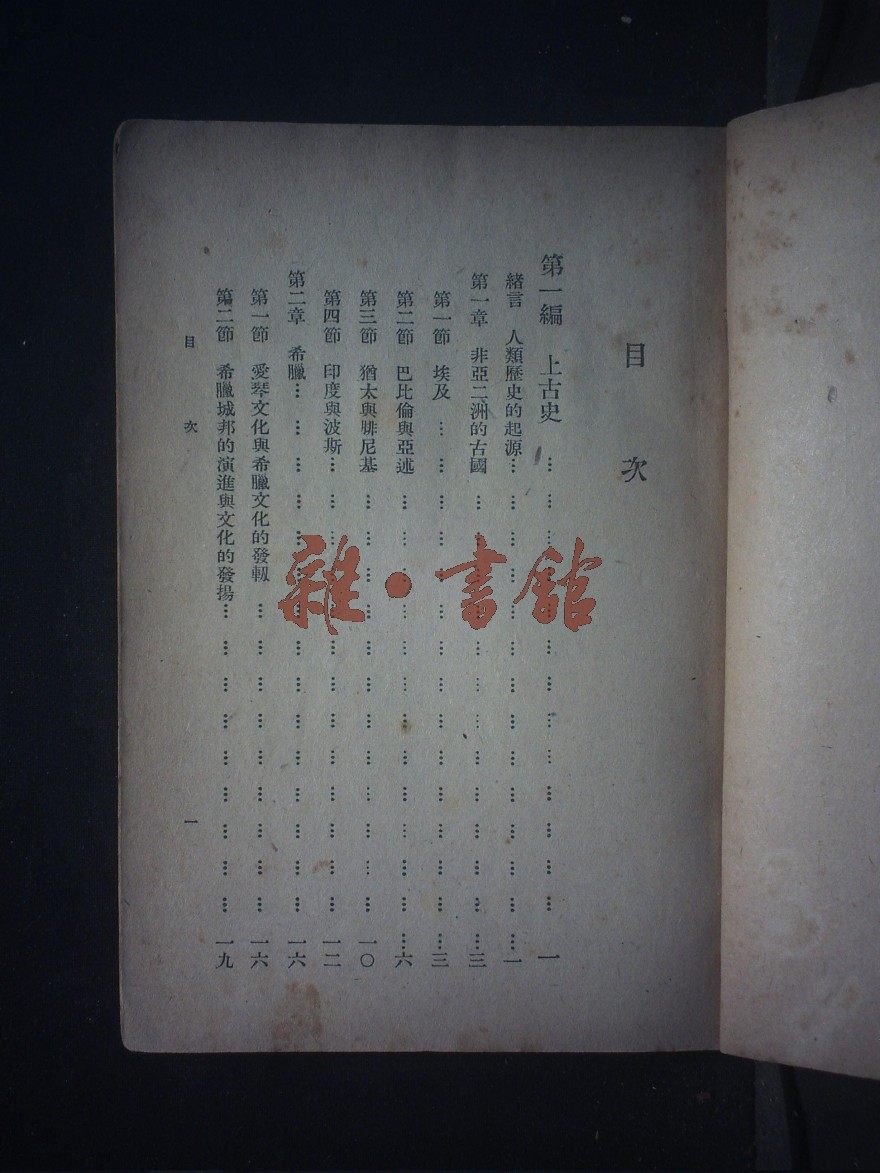 目次
第一編　上古史……………………一
緒言　人類歷史的起源……………………一
第一章　非亞二洲的古國……………………三
第一節　埃及……………………三
第二節　巴比倫與亞述……………………六
第三節　猶太與腓尼基……………………一〇
第四節　印度與波斯……………………一二
第二章　希臘……………………一六
第一節　愛琴文化與希臘文化的發軔……………………一六
第二節　希臘城邦的演進與文化的發揚……………………一九
目次　一
雜·書館